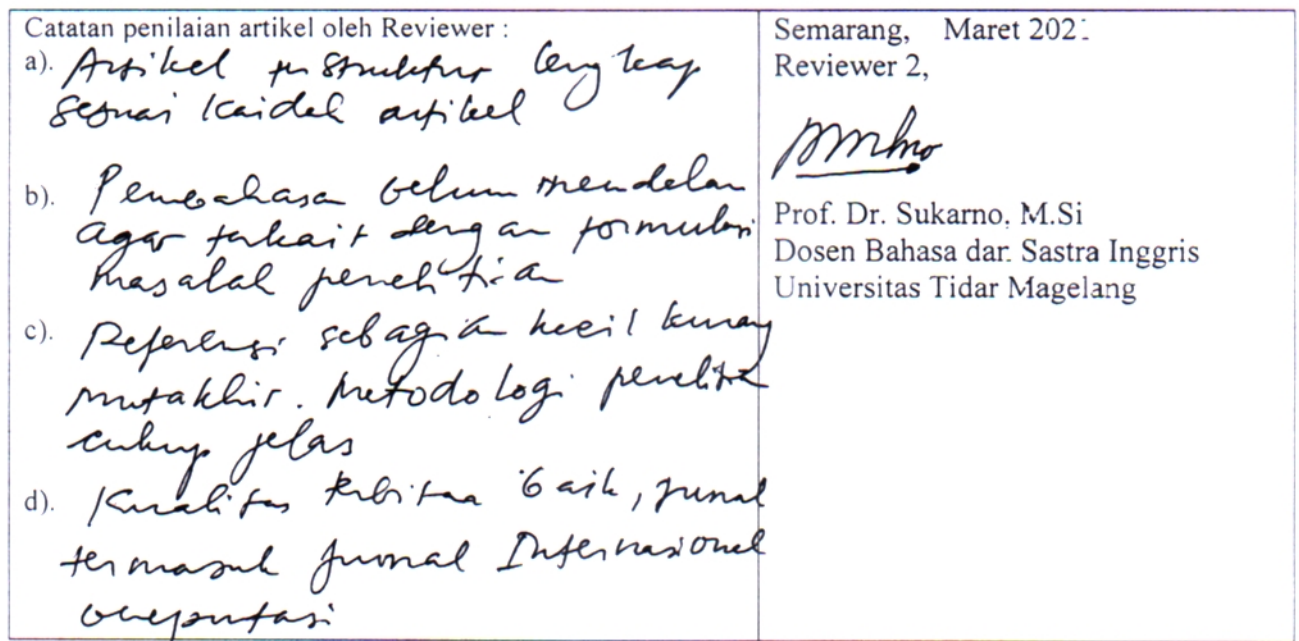 Catatan penilaian artikel oleh Reviewer :
a). Artikel terstruktur lengkap
sesuai kaidah artikel
b). Pembahasan belum mendalam
agar terkait dengan formulasi
masalah penelitian
c). Referensi sebagian kecil kurang
mutakhir. Metodologi penelitian
cukup jelas
d). Kualitas terbitan baik, jurnal
termasuk jurnal Internasional
bereputasi
Semarang, Maret 202
Reviewer 2,
Prof. Dr. Sukarno, M.Si
Dosen Bahasa dan Sastra Inggris
Universitas Tidar Magelang